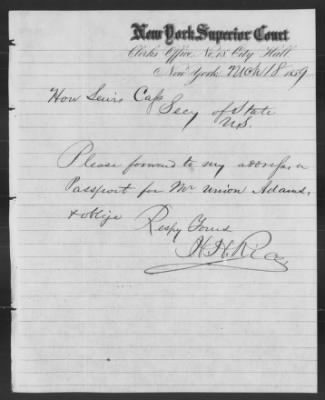 New York Superior Court
Clerk's Office No. 18 City Hall
New York, Mch 18 1859
Hon Lewis Cass
Secy of State
U.S.
Please forward to my address, a
Passport for Mr Union Adams,
& oblige
Respy Yours
H. H. Rice